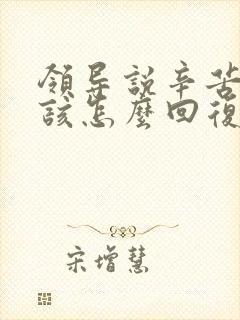 領导説辛苦
該怎麽回復
宋增慧